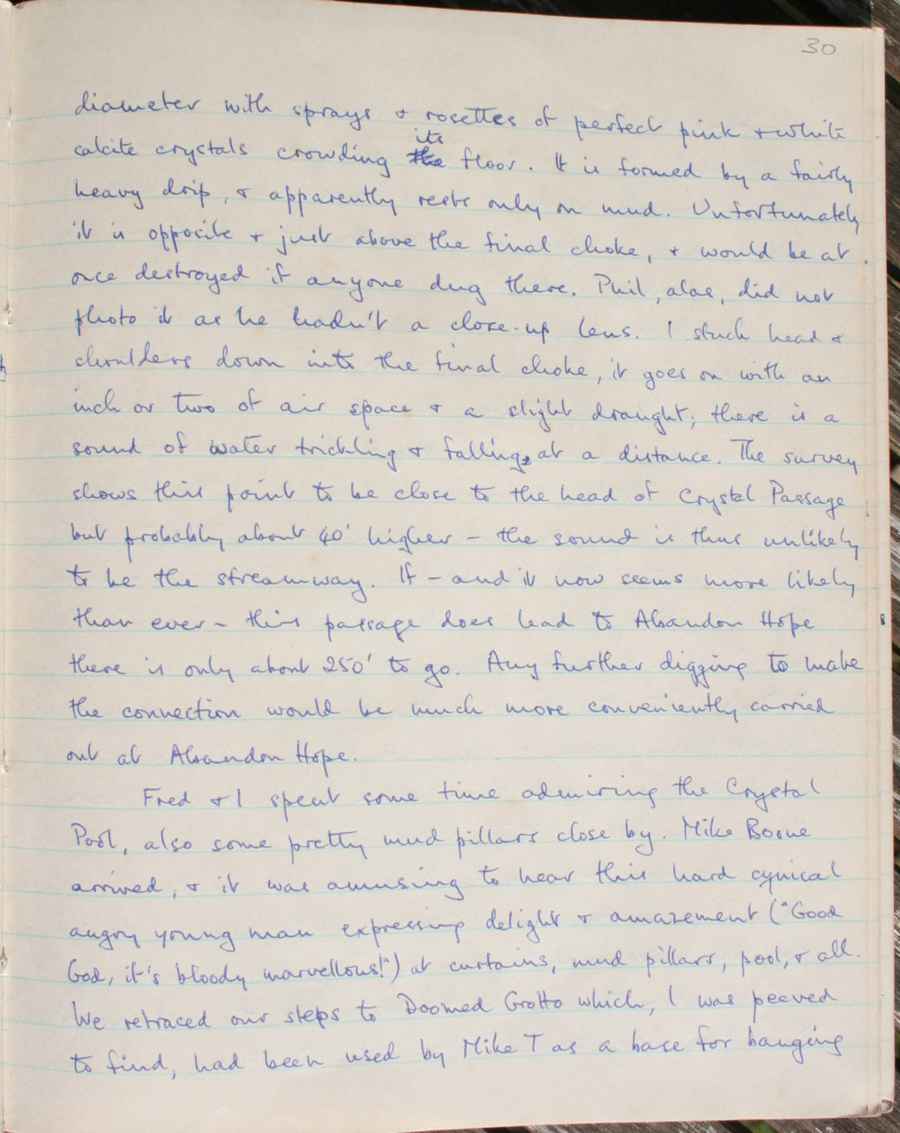 30
diameter with sprays & rosettes of perfect pink & white
calcite crystals crowding its floor. It is formed by a fairly
heavy drip, & apparently rests only on mud. Unfortunately
it is opposite & just above the final choke, & would be at
once destroyed if anyone dug there. Phil, alas, did not
photo it as he hadn't a close-up lens. I stuck head &
shoulders down into the final choke, it goes on with an
inch or two of air space & a slight draught; there is a
sound of water trickling & falling, at a distance. The survey
shows this point to be close to the head of Crystal Passage
but probably about 40' higher – the sound is thus unlikely
to be the streamway. If – and it now seems more likely
than ever – this passage does lead to Abandon Hope
there is only about 250' to go. Any further digging to make
the connection would be much more conveniently carried
out at Abandon Hope.
Fred & I spent some time admiring the Crystal
Pool, also some pretty mud pillars close by. Mike Boone
arrived, & it was amusing to hear this hard cynical
angry young man expressing delight & amazement ("Good
God, it's bloody marvellous!") at curtains, mud pillars, pool, & all.
We retraced our steps to Doomed Grotto which, I was peeved
to find, had been used by Mike T as a base for banging